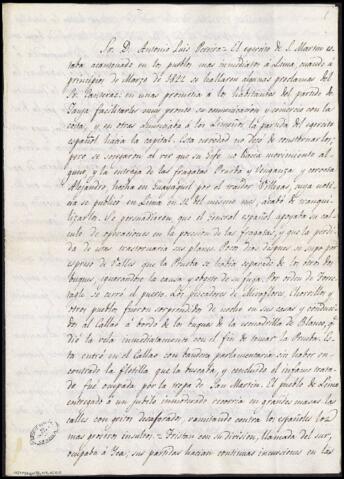 Sr. D. Antonio Luis Pereira = El egercito de S. Martin es-
taba acantonado en los pueblos mas inmediatos á Lima, cuando á
principios de Marzo de 1822 se hallaron algunas proclamas del
Sr. Canterac: en una prometia á los habitantes del partido de
Jauja facilitarles muy pronto su comunicacion y comercio con la
costa, y en otras anunciaba á los Limeños la partida del egercito
español hacia la capital. Esta novedad no dejó de consternarlos;
pero se sosegaron al ver que su Gefe no hacia movimiento al-
guno y la entrega de las fragatas Prueba y Venganza y corveta
Alejandro, hecha en Guayaquil por el traidor Villegas, cuya noti-
cia se publicó en Lima en 12 del mismo mes, acabó de tranqui-
lizarlos. Se persuadieron que el General español apoyaba su cal-
culo de operaciones en la posesion de las fragatas, y que la perdi-
da de estas trastornaria sus planes. Pocos dias despues se supo por
espreso de Valles que la Prueba se habia separado de los otros dos
buques, ignorandose la causa y objeto de su fuga. Por orden de Torre-
tagle se cerró el puerto. Los pescadores de Miraflores, Chorrillos y
otros pueblos fueron sorprendidos de noche en sus casas y conduci-
dos al Callao á bordo de los buques de la escuadrilla de Blanco, q.e
dió la vela inmediatamente con el fin de tomar la Prueba. Es-
ta entró en el Callao con bandera parlamentaria sin haber en-
contrado la flotilla que la buscaba, y concluido el infame trata-
do fué ocupada por la tropa de San Martin. El pueblo de Lima
entregado á un jubilo inmoderado recorria en grandes masas las
calles con gritos desaforados, vomitando contra los españoles los
mas groseros insultos. = Tristan con su division, llamada del sur,
ocupaba á Yca; sus partidas hacian continuas incursiones en las